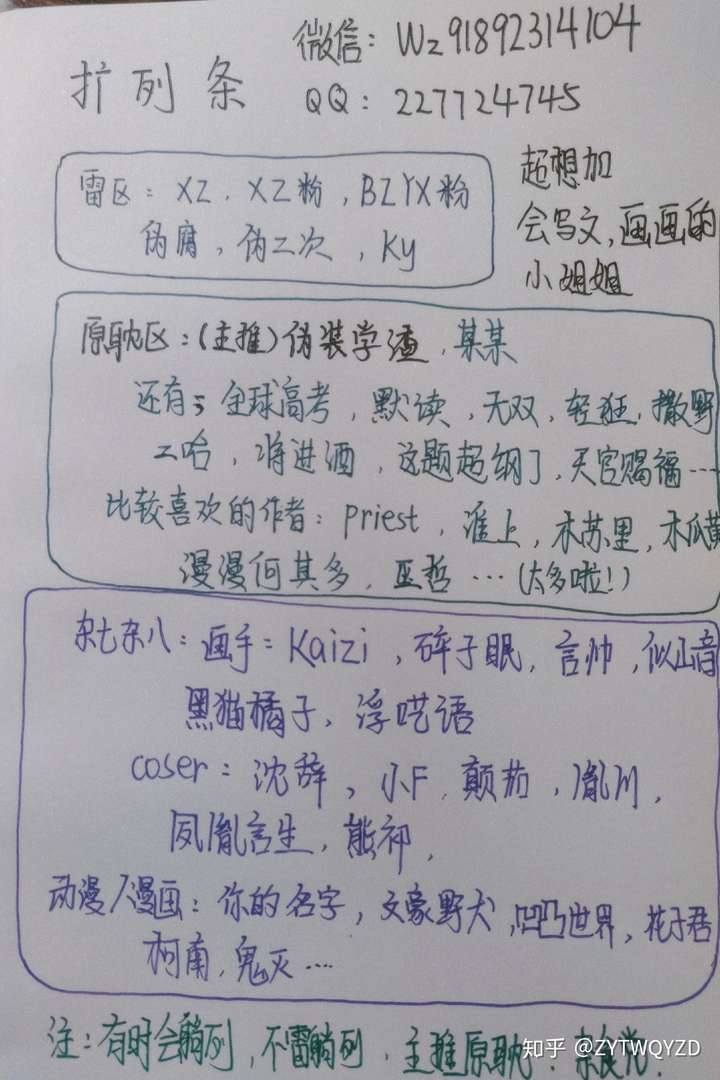 扩列条
微信：Wz91892314104
QQ：2277247​45
超想加
会写文，画画的
小姐姐
雷区：XZ，XZ粉，BZYX粉
伪腐，伪二次，Ky
原耽区：（主推）伪装学渣，某某
还有：全球高考，默读，无双，轻狂，撒野
二哈，将进酒，这题超纲了，天官赐福…
比较喜欢的作者：priest，淮上，木苏里，木瓜黄
漫漫何其多，巫哲…（太多啦！）
杂七杂八：画手：Kaizi，碎子眠，言帅，似山音
黑猫橘子，浮呓语
coser：沈辞，小F，颠茄，胤川，
凤胤言生，熊祁，
动漫/漫画：你的名字，文豪野犬，凹凸世界，花子君
柯南，鬼灭…
注：有时会躺列，不雷躺列，主推原耽，杂食党.
知乎 @ZYTWQYZD